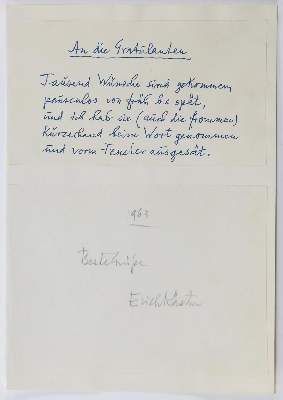 An die Gratulanten
Tausend Wünsche sind gekommen,
pausenlos von früh bis spät,
und ich hab sie (auch die frommen)
kurzerhand beim Wort genommen
und vorm Fenster ausgesät.
Erich Kästner